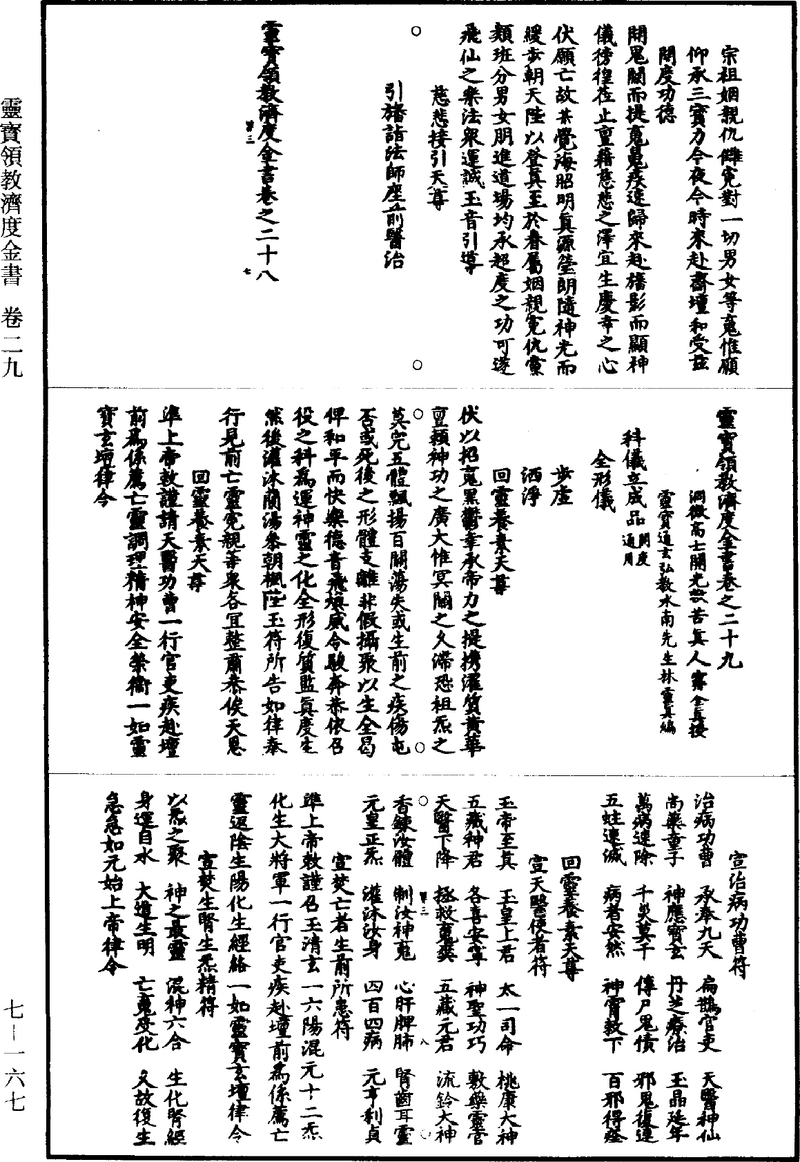 宗祖姻親仇讎寃對一切男女等䰟惟願
仰承三寶力今夜今時來赴齋壇和受玆
開度功德
開鬼關而提䰟䰟疾速歸來赴旛影而顯神
儀徬徨莅止亶藉慈悲之澤宜生慶幸之心
伏願亡故某覺海昭明眞源瑩朗隨神光而
緩步朝天陛以登眞至於眷屬姻親寃仇黨
類班分男女朋進道場均承超度之功可遂
飛仙之樂法衆運誠玉音引導
慈悲接引天尊
引旛詣法師座前醫治
靈寳領教濟度金書卷之二十八
靈寳領教濟度金書卷之二十九
洞微高士開光救苦眞人寗全眞授
靈寳通玄弘教水南先生林靈眞編
科儀立成品 開度通用
全形儀
步虛
洒淨
回靈養素天尊
伏以招䰟黑鬱幸承帝力之提携濯質黄華
亶賴神功之廣大惟冥關之久滯恐祖炁之
莫完五體飄揚百關蕩失或生前之疾傷屯
否或死後之形體支離非假攝聚以生全曷
俾和平而快樂德音飛煥威令駿奔恭依召
役之科爲運神靈之化全形復質監眞度生
然後灌沐蘭湯叅朝楓陛玉符所告如律奉
行見前亡靈寃親等衆各宜整肅恭俟天恩
回靈養素天尊
準上帝敕謹請天醫功曹一行官吏疾赴壇
前爲係薦亡靈調理精神安全榮衞一如靈
寳玄壇律令
宣治病功曹符
治病功曹 承奉九天 扁鵲官吏 天醫神仙
尚藥童子 神應寳玄 丹芝療治 玉晶延年
萬病速除 千災莫干 傳尸鬼債 邪鬼復連
五蛀速滅 病者安然 神霄敕下 百邪得痊
回靈養素天尊
宣天醫使者符
玉帝至眞 玉皇上君 太一司命 桃康大神
五藏神君 各喜安尊 神聖功巧 敷藥靈官
天醫下降 拯救䰟爽 五藏元君 流鈴大神
香鍊汝體 制汝神䰟 心肝脾肺 腎齒耳靈
元皇正炁 灌沐汝身 四百四病 元亨利貞
宣焚亡者生前所患符
準上帝敕謹召玉清玄一六陽混元十二炁
化生大將軍一行官吏疾赴壇前爲係薦亡
靈返陰生陽化生經絡一如靈寳玄壇律令
宣焚生腎生炁精符
以炁之聚 神之最靈 混神六合 生化腎經
身運自水 大道生明 亡䰟受化 久故復生
急急如元始上帝律令
靈寳領教濟度金書 卷二九
七－一六七